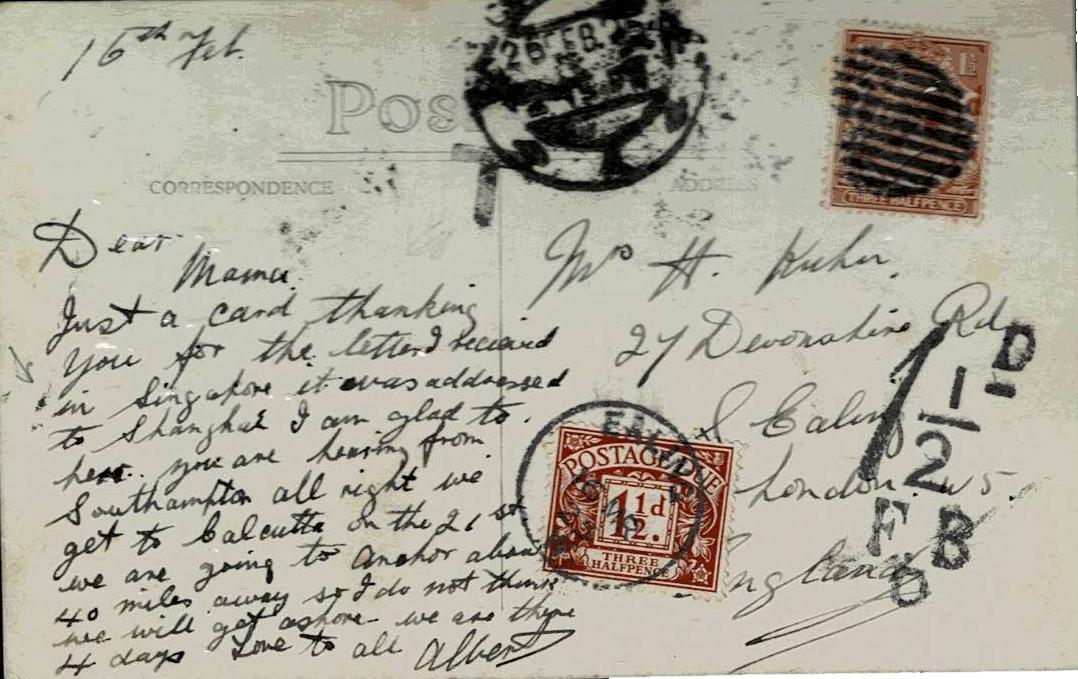 16th Feb.
26 FEB.
POS
T
CORRESPONDENCE
ADDRESS
1½
THREE HALFPENCE
Dear
Mama.
Just a card thanking
you for the letter I recieved
in Singapore it was addressed
to Shanghai I am glad to
hear you are hearing from
Southampton all right we
get to Calcutta on the 21st
we are going to anchor about
40 miles away so I do not think
we will get ashore we are there
4 days Love to all Albert
Mrs H.
27 Devonshire Rd
S Ealing
London. W5.
England
1½D
F B
EALING
POSTAGE DUE
1½d.
THREE
HALFPENCE